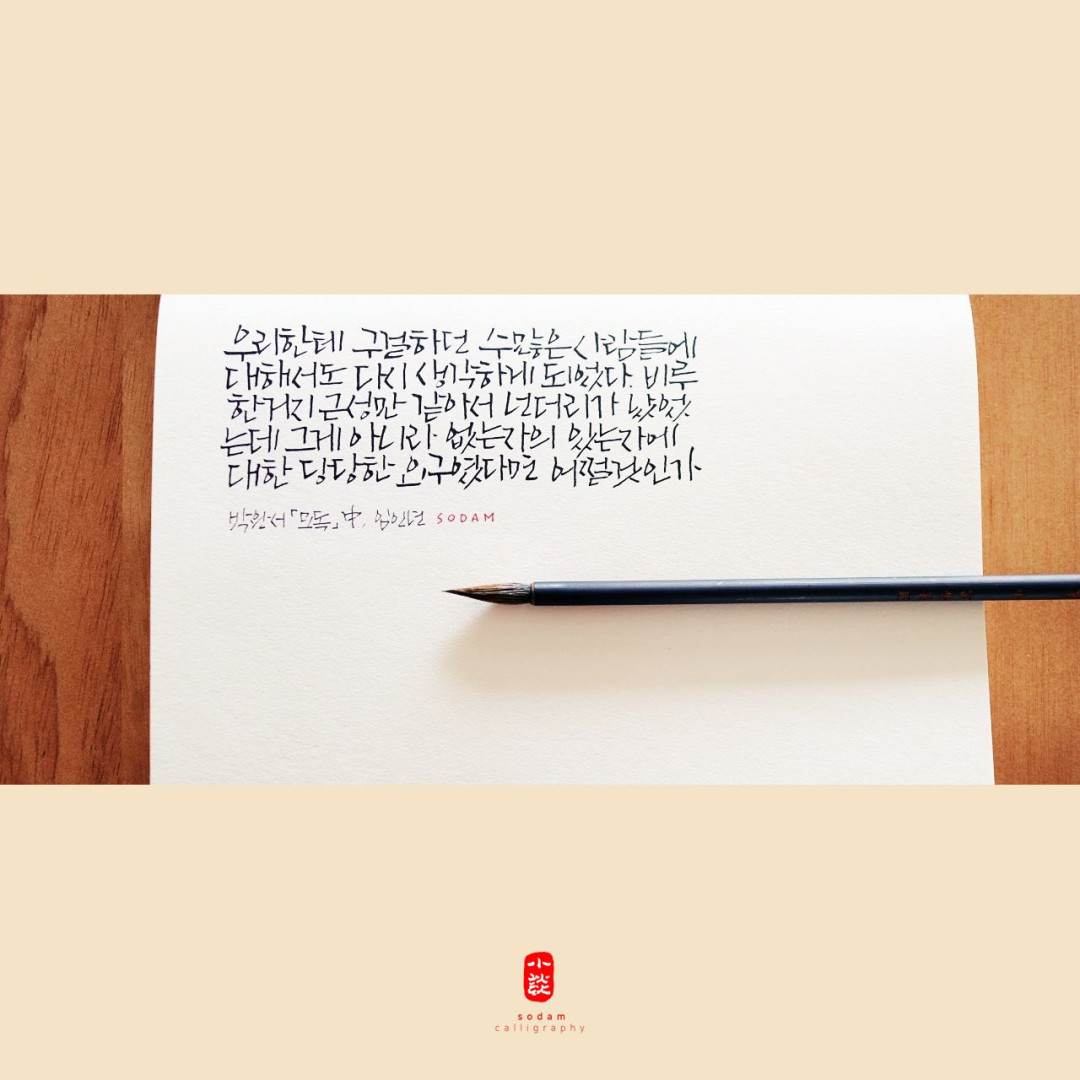 우리한테 구걸하던 수많은 사람들에
대해서도 다시 생각하게 되었다. 비루
한 거지 근성만 같아서 넌더리가 났었
는데 그게 아니라 없는 자의 있는 자에
대한 당당한 요구였다면 어쩔것인가
박완서 「모독」 中, 임인년 SODAM
小談
sodam
calligraphy